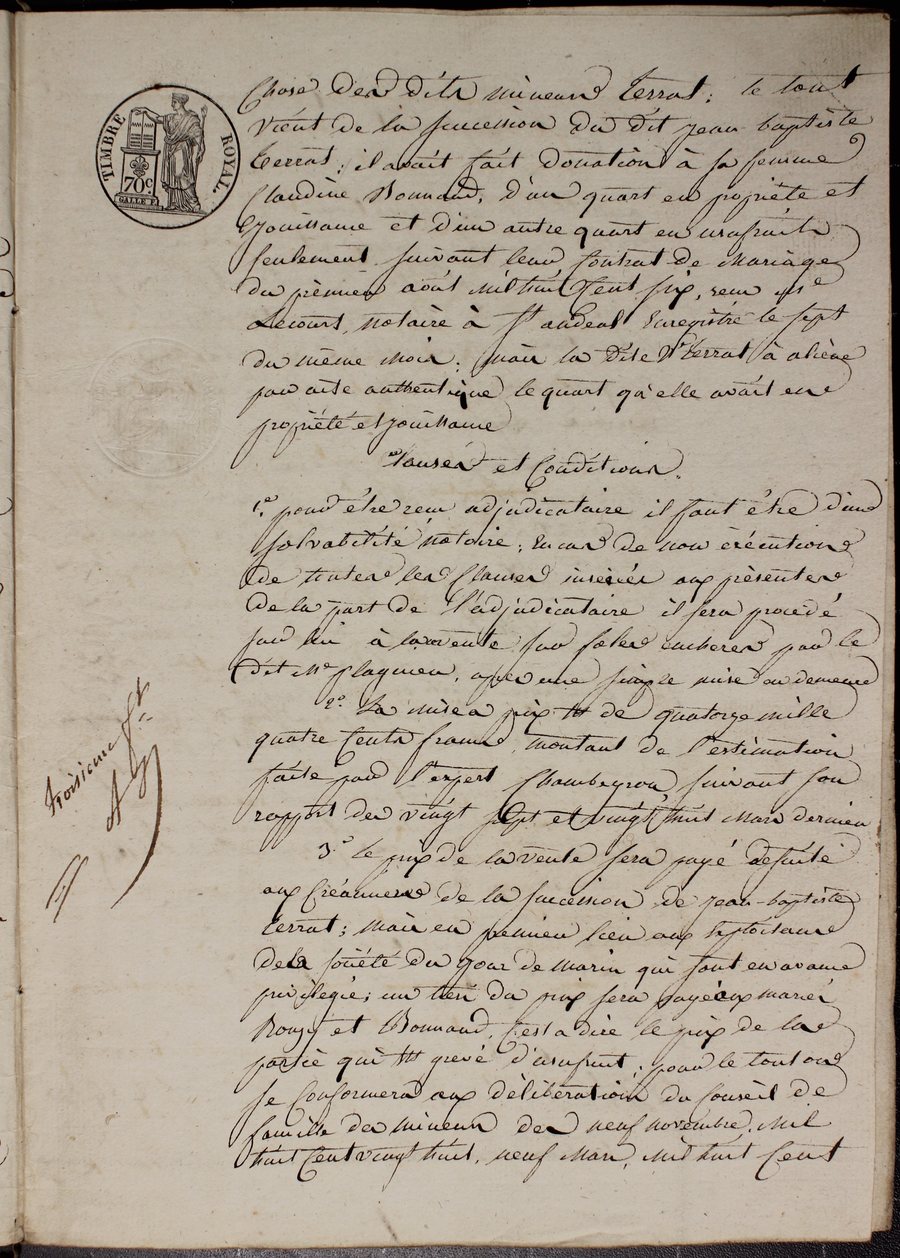 TIMBRE ROYAL.
70c.
GALLE F.
Chose des dits mineurs Terrat; le tout
vient de la succession du dit jean-baptiste
Terrat; il avait fait donation à sa femme
Claudine Bonnand, d'un quart en propriété et
jouissance et d'un autre quart en usufruit
seulement suivant leur Contrat de Mariage
du premier août Mil huit Cent six, reçu Me
Lecourt, notaire à St andeol Enregistré le sept
du même mois; mais la dite Ve Terrat à aliéné
par acte authentique le quart qu'elle avait en
propriété et jouissance
Clauses et Conditions.
1o. pour être reçu adjudicataire il faut être d'une
solvabilité notoire; En cas de non exécution
de toutes les Clauses insérées aux présentes
de la part de l'adjudicataire il sera procédé
sur lui à la vente sur folles encheres par le
dit Me plagnieu, après une simple mise en demeure
2o. La mise a prix est de quatorze mille
quatre Cents francs, montant de l'estimation
faite par l'expert Chambeyron, suivant son
rapport des vingt sept et vingt huit Mars dernier
3o le prix de la vente sera payé de suite
aux Créanciers de la succession de jean-baptiste
Terrat; mais en premier lieu aux
de la société du gour de marin qui sont en
privilegié; un tiers du prix sera payé aux mariés
et Bonnand, C'est a dire le prix de la
partie qui est grevé d'usufruit; pour le tout on
se Conformera aux déliberations du Conseil de
famille des mineurs des neuf novembre, Mil
huit Cent vingt huit, neuf Mars, Mil huit Cent
troisieme